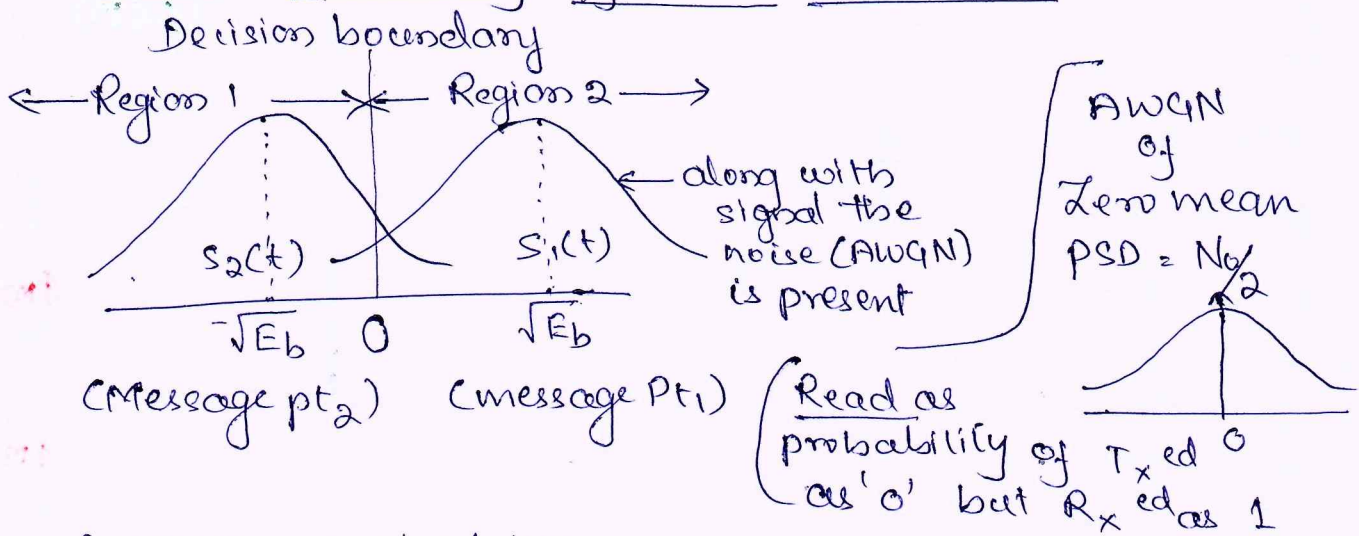 Decision boundary
Region 1
Region 2
S₂(t)
S₁(t)
along with
signal the
noise (AWGN)
is present
-√Eb
0
√Eb
(Message pt₂)
(message Pt₁)
AWGN
of
Zero mean
PSD = No/2
0
(Read as
probability of Txed
as '0' but Rxed as 1